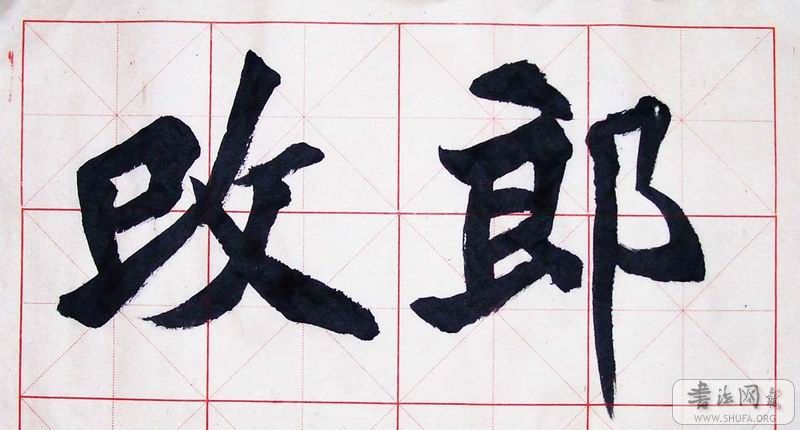 改郎
书法网
WWW.SHUFA.ORG